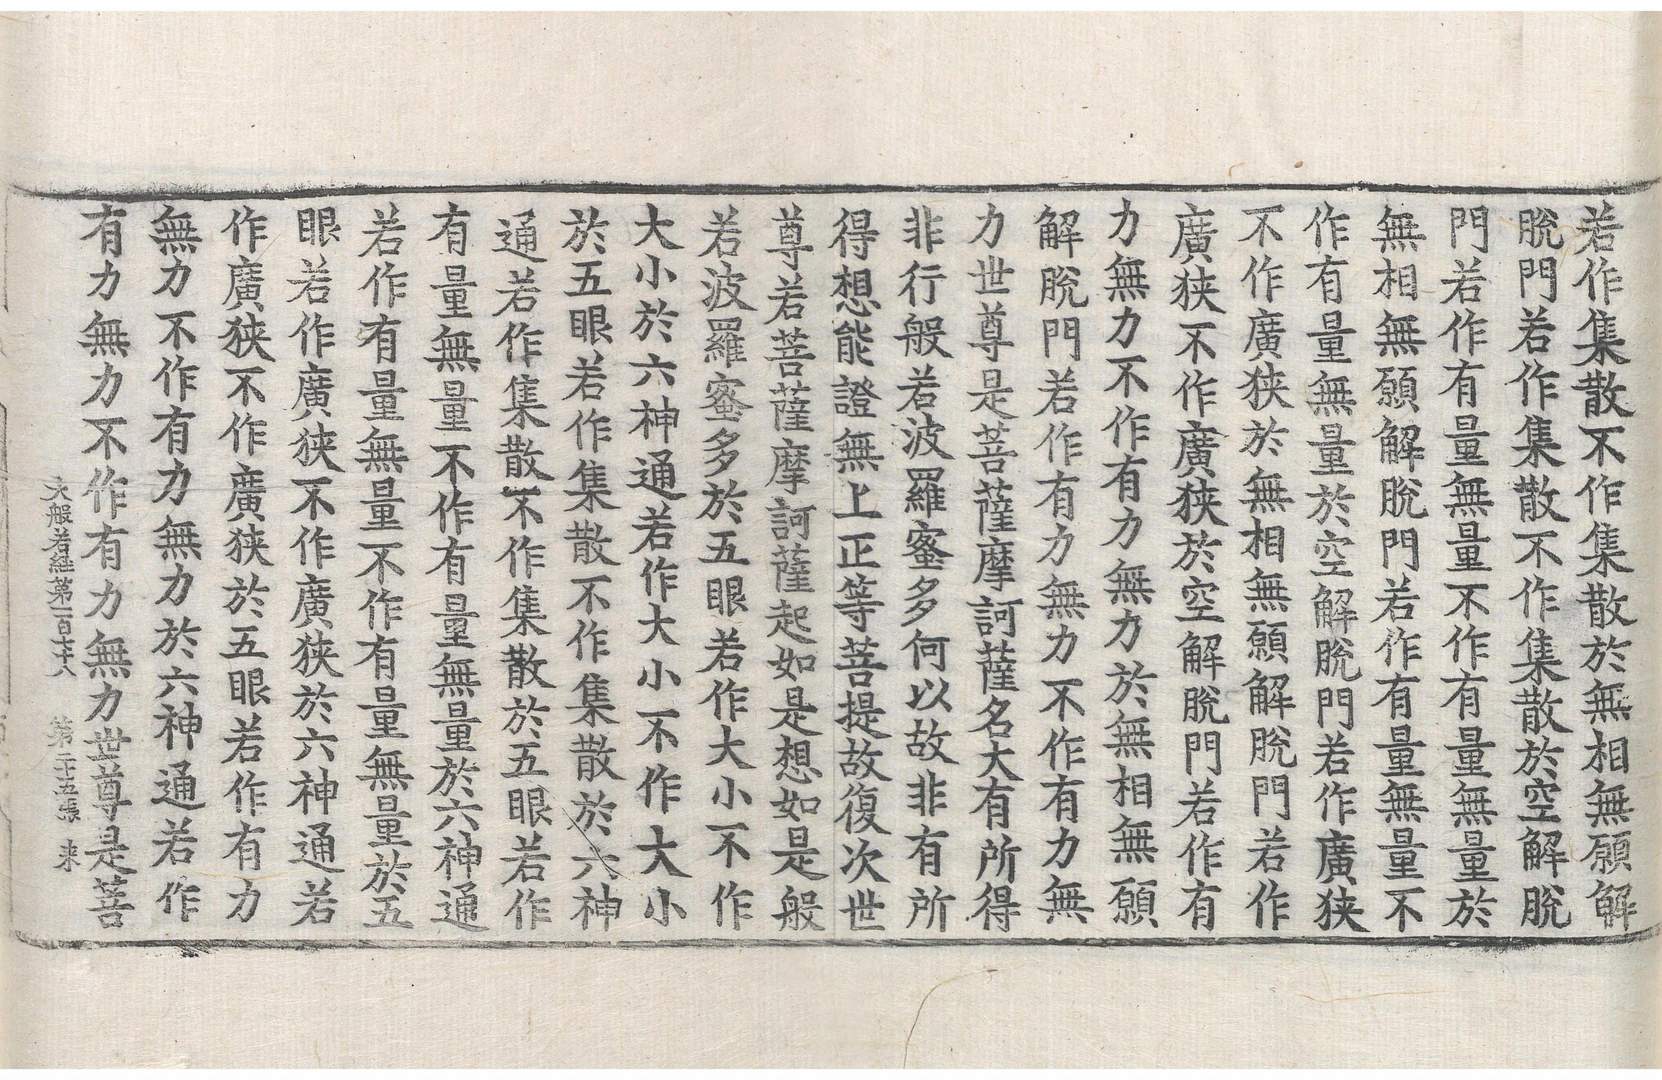 若作集散不作集散於無相無願解
脫門若作集散不作集散於空解脫
門若作有量無量不作有量無量於
無相無願解脫門若作有量無量不
作有量無量於空解脫門若作廣狹
不作廣狹於無相無願解脫門若作
廣狹不作廣狹於空解脫門若作有
力無力不作有力無力於無相無願
解脫門若作有力無力不作有力無
力世尊是菩薩摩訶薩名大有所得
非行般若波羅蜜多何以故非有所
得想能證無上正等菩提故復次世
尊若菩薩摩訶薩起如是想如是般
若波羅蜜多於五眼若作大小不作
大小於六神通若作大小不作大小
於五眼若作集散不作集散於六神
通若作集散不作集散於五眼若作
有量無量不作有量無量於六神通
若作有量無量不作有量無量於五
眼若作廣狹不作廣狹於六神通若
作廣狹不作廣狹於五眼若作有力
無力不作有力無力於六神通若作
有力無力不作有力無力世尊是菩
大般若經第一百七十八 第二十五張 来